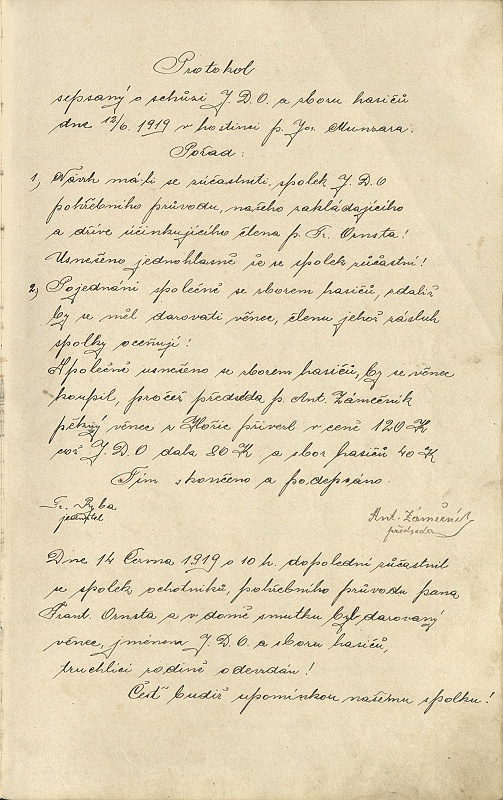 Protokol
sepsaný o schůzi J. D. O. a sboru hasičů
dne 12/6. 1919 v hostinci p. Jos. Munzara.
Pořad:
1, Návrh má-li se súčastniti, spolek J. D. O
pohřebního průvodu, našeho zakládajícího
a dříve účinkujícího člena p. Fr. Ornsta!
Usnešeno jednohlasně že se spolek súčastní!
2, Pojednání společně se sborem hasičů, zdaliž
by se měl darovati věnec, členu jehož zásluh
spolky oceňují!
I společně usnešeno se sborem hasičů, by se věnec
koupil, pročež předseda p. Ant. Zámečník
pěkný věnec z Hořic přivezl v ceně 120 K
což J. D. O dala 80 K a sbor hasičů 40 K
Tím skončeno a podepsáno.
Fr. Ryba
jednatel
Ant. Zámečník
předseda
Dne 14 Června 1919 o 10 h. dopolední súčastnil
se spolek ochotníků, pohřebního průvodu pana
Frant. Ornsta a v domě smutku byl darovaný
věnec, jménem J. D. O. a sboru hasičů,
truchlící rodině odevzdán!
Čest budiž upomínkou našemu spolku!